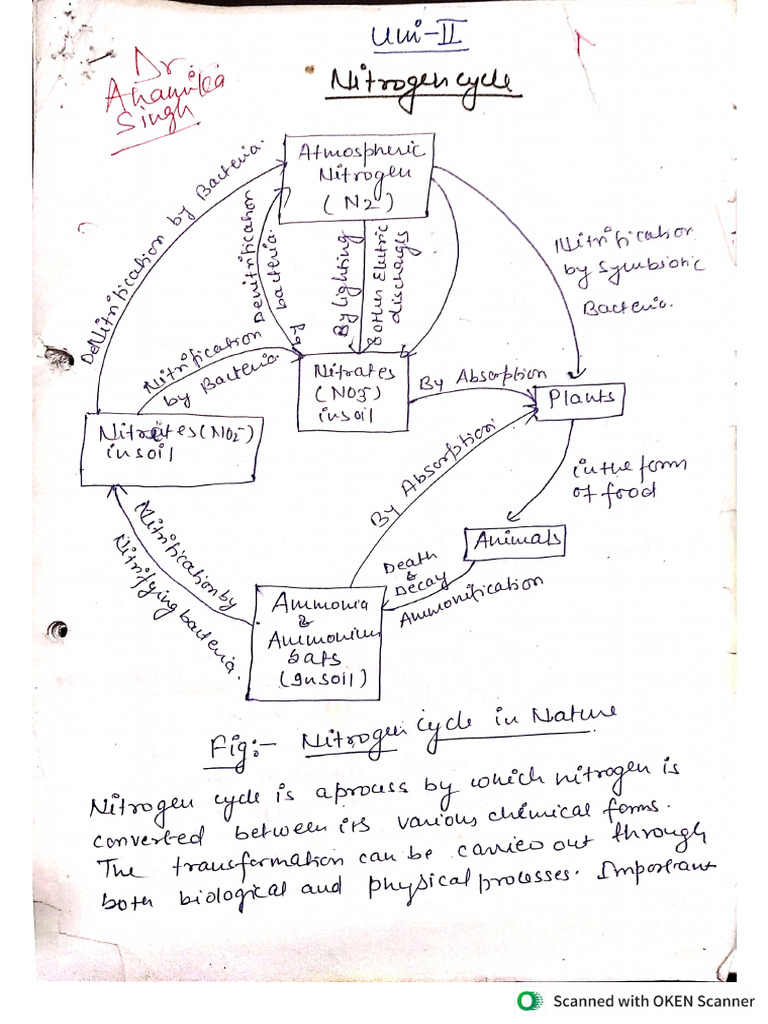 Uni-II
Dr
Anamika
Singh
Nitrogen cycle
Atmospheric
Nitrogen
(N2)
DeNitrification by Bacteria.
Denitrification by
bacteria.
By lighting
& other Eletric
discharges
Nitrification
by Symbiotic
Bacteria.
Nitrification
by Bacteria.
Nitrates
(NO3-)
insoil
By Absorption
Plants
Nitrites (NO2-)
insoil
By Absorption
in the form
of food
Animals
Nitrification by
Nitrifying bacteria.
Death
&
Decay
Ammonification
Ammonia
&
Ammonium
Sats
(Insoil)
Fig:- Nitrogen Cycle in Nature
Nitrogen cycle is a process by which nitrogen is
converted between its various chemical forms.
The transformation can be carried out through
both biological and physical processes. Important
Scanned with OKEN Scanner